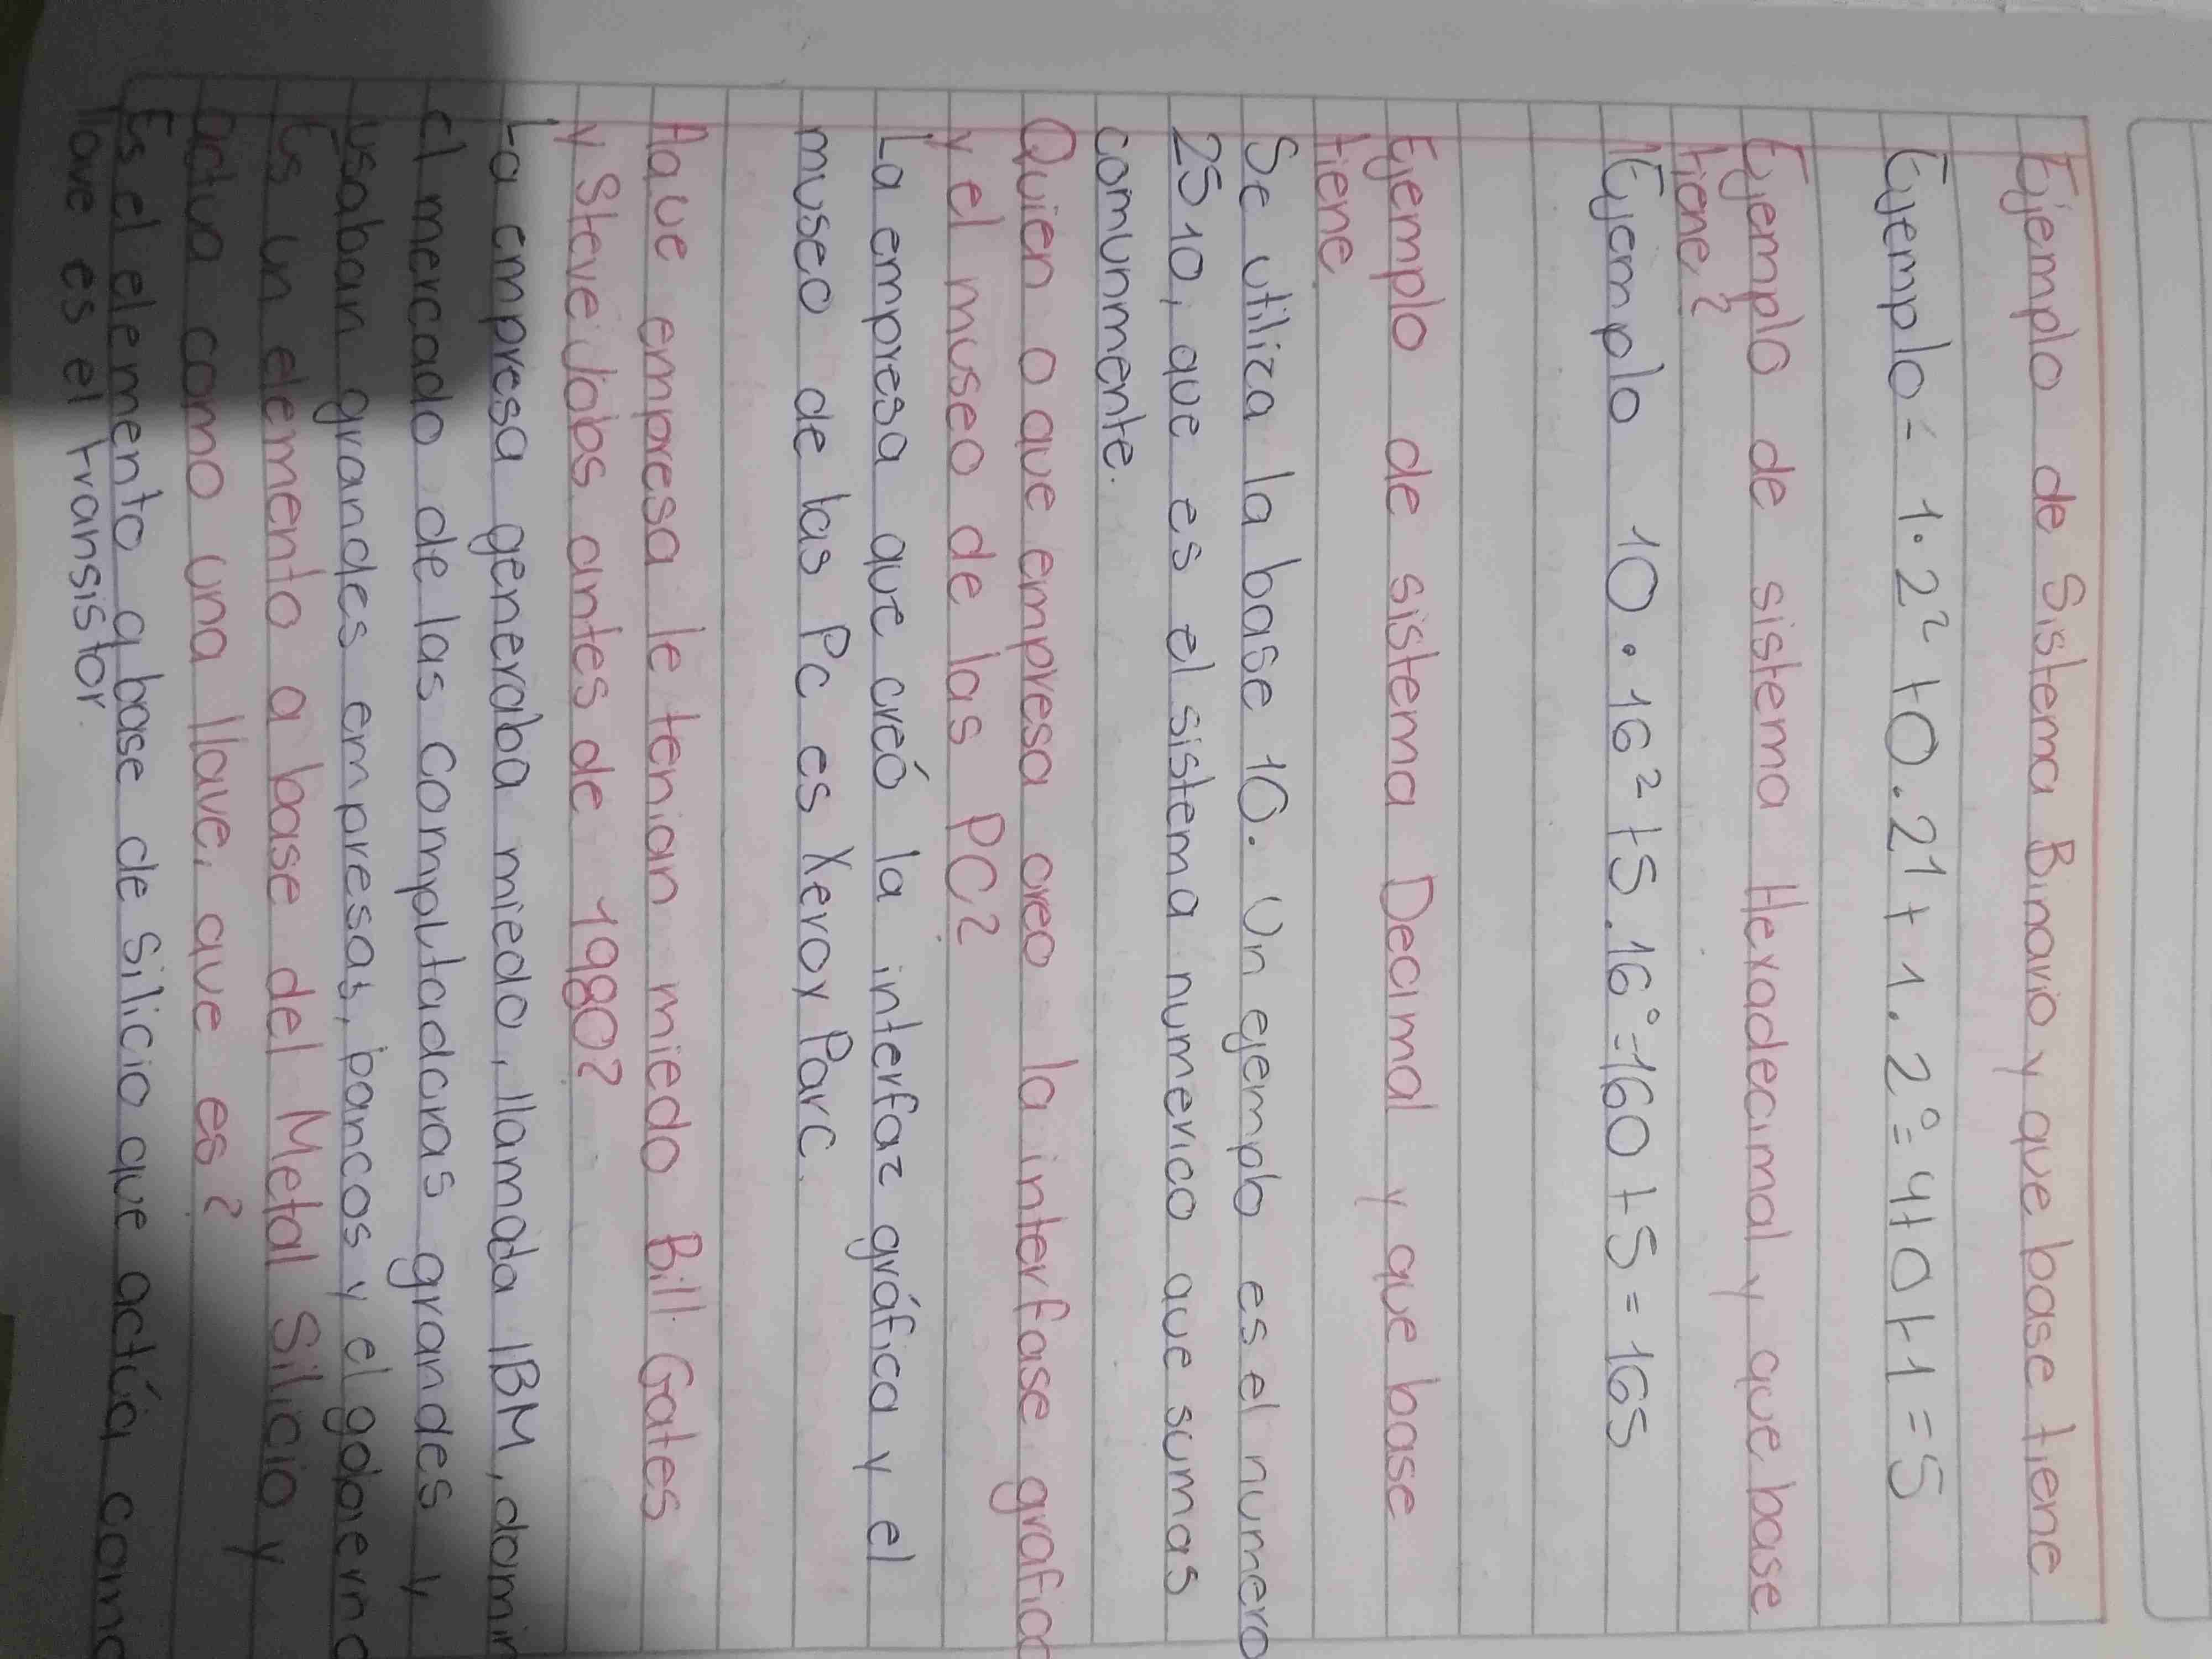 Ejemplo de Sistema Binario y que base tiene
Ejemplo = 1 · 2² + 0 . 2¹ + 1 . 2° = 4 + 0 + 1 = 5
Ejemplo de sistema Hexadecimal y que base
tiene?
Ejemplo 10 · 16² + 5 . 16° = 160 + 5 = 165
Ejemplo de sistema Decimal y que base
tiene
Se utiliza la base 10. Un ejemplo es el numero
2510, que es el sistema numerico que sumas
comunmente.
Quien o que empresa creo la interfase grafica
y el museo de las PC?
La empresa que creó la interfaz gráfica y el
museo de las Pc es Xerox Parc.
A que empresa le tenian miedo Bill Gates
y Steve Jobs antes de 1980?
La empresa generaba miedo, llamada IBM,
el mercado de las computadoras grandes y
usaban grandes empresas, bancos y el gobierno
Es un elemento a base del Metal Silicio y
actua como una llave, que es?
Es el elemento a base de Silicio que actúa como
llave es el transistor.